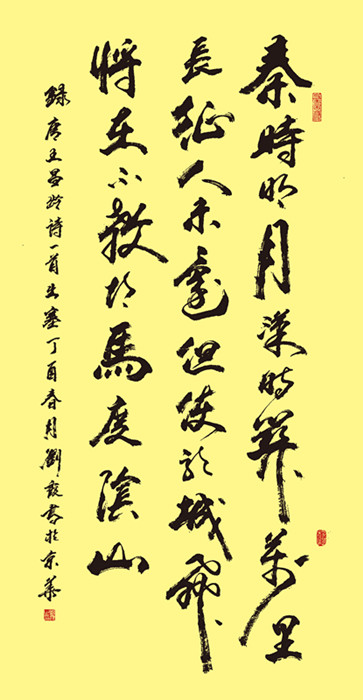 秦時明月漢時關萬里
長征人未還但使龍城飛
將在不教胡馬度陰山
錄唐王昌龄詩一首出塞丁酉春月劉書於京華